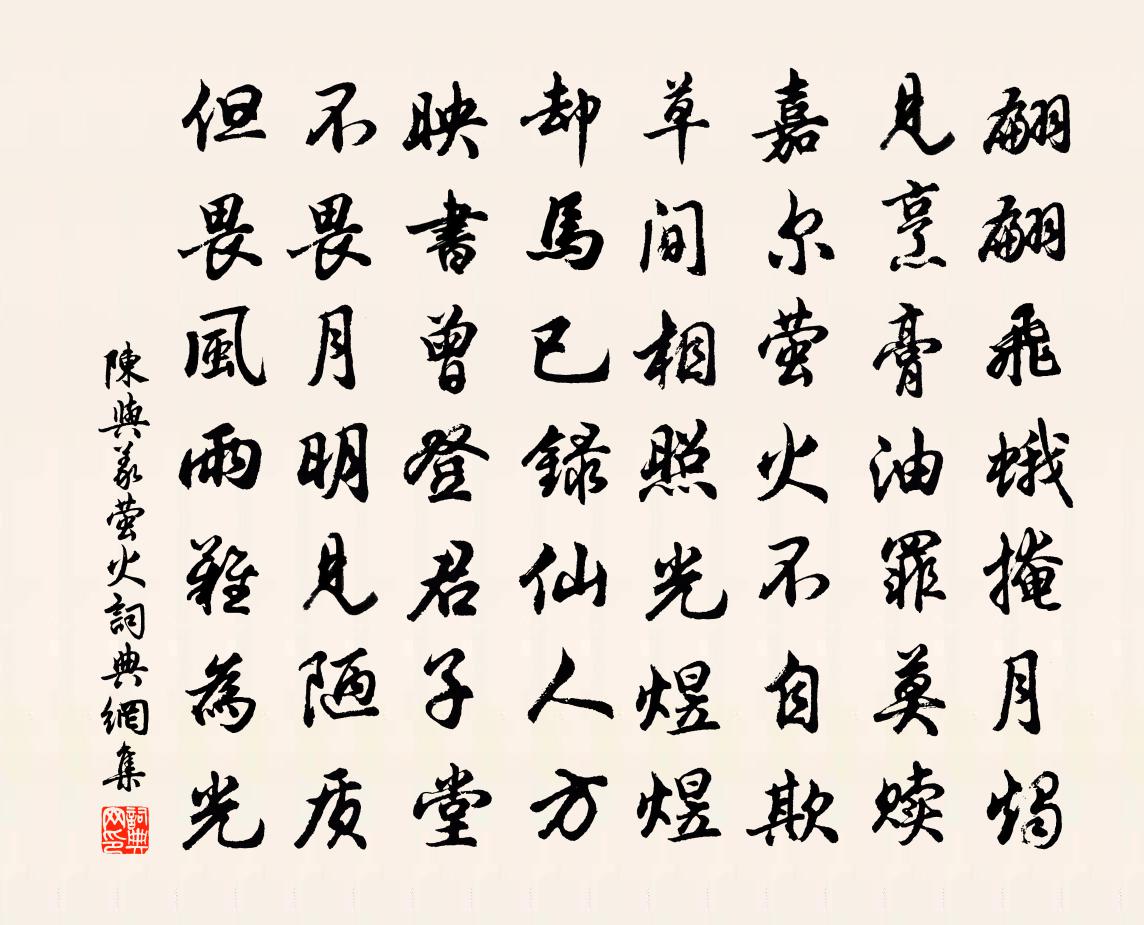 翩翩飛蛾掩月燭
見烹膏油罪莫赎
嘉尔萤火不自欺
草间相照光煜煜
却馬已録仙人方
映書曾登君子堂
不畏月明見陋质
但畏風雨難為光
陳與義萤火詞典網集
詞典网印